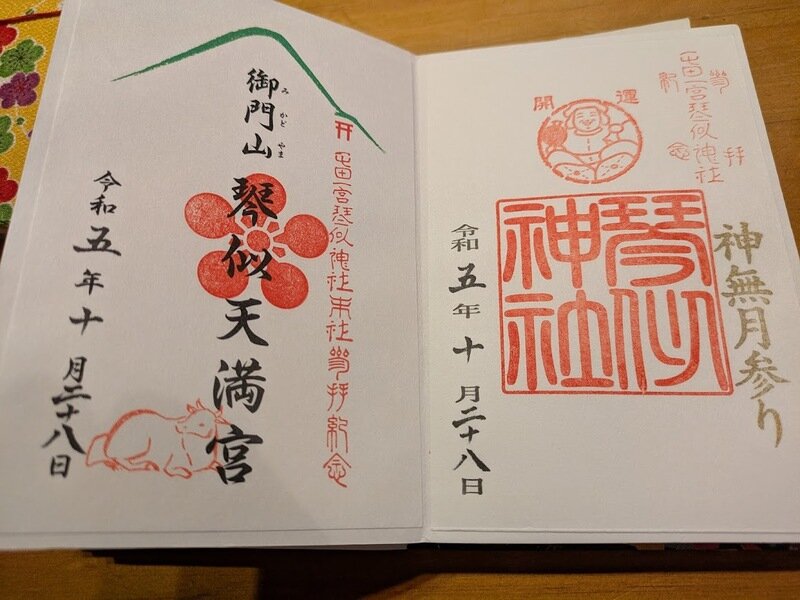 屯田一宮琴似神社
參拝
紀念
開運
神無月参り
琴似神社
令和五年十月二十八日
屯田一宮琴似神社末社參拝紀念
みかどやま
御門山
琴似天満宮
令和五年十月二十八日